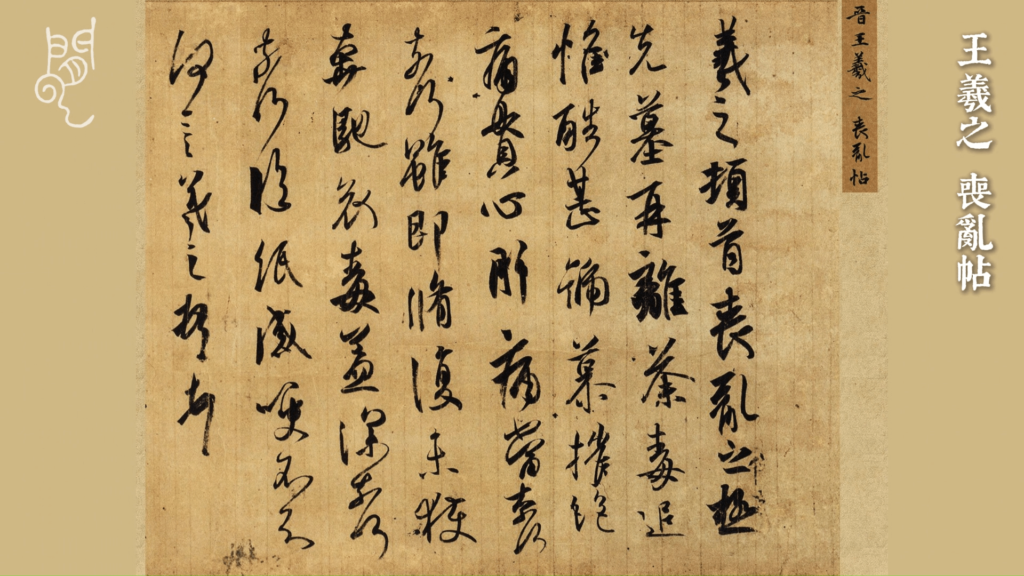 王羲之 喪亂帖
晉王羲之 喪亂帖
羲之頓首喪亂之極
先墓再離荼毒追
惟酷甚號慕摧絕
痛貫心肝痛當奈何
奈何雖即脩復未獲
奔馳哀毒益深奈何
奈何臨紙感哽不知
何言羲之頓首頓首